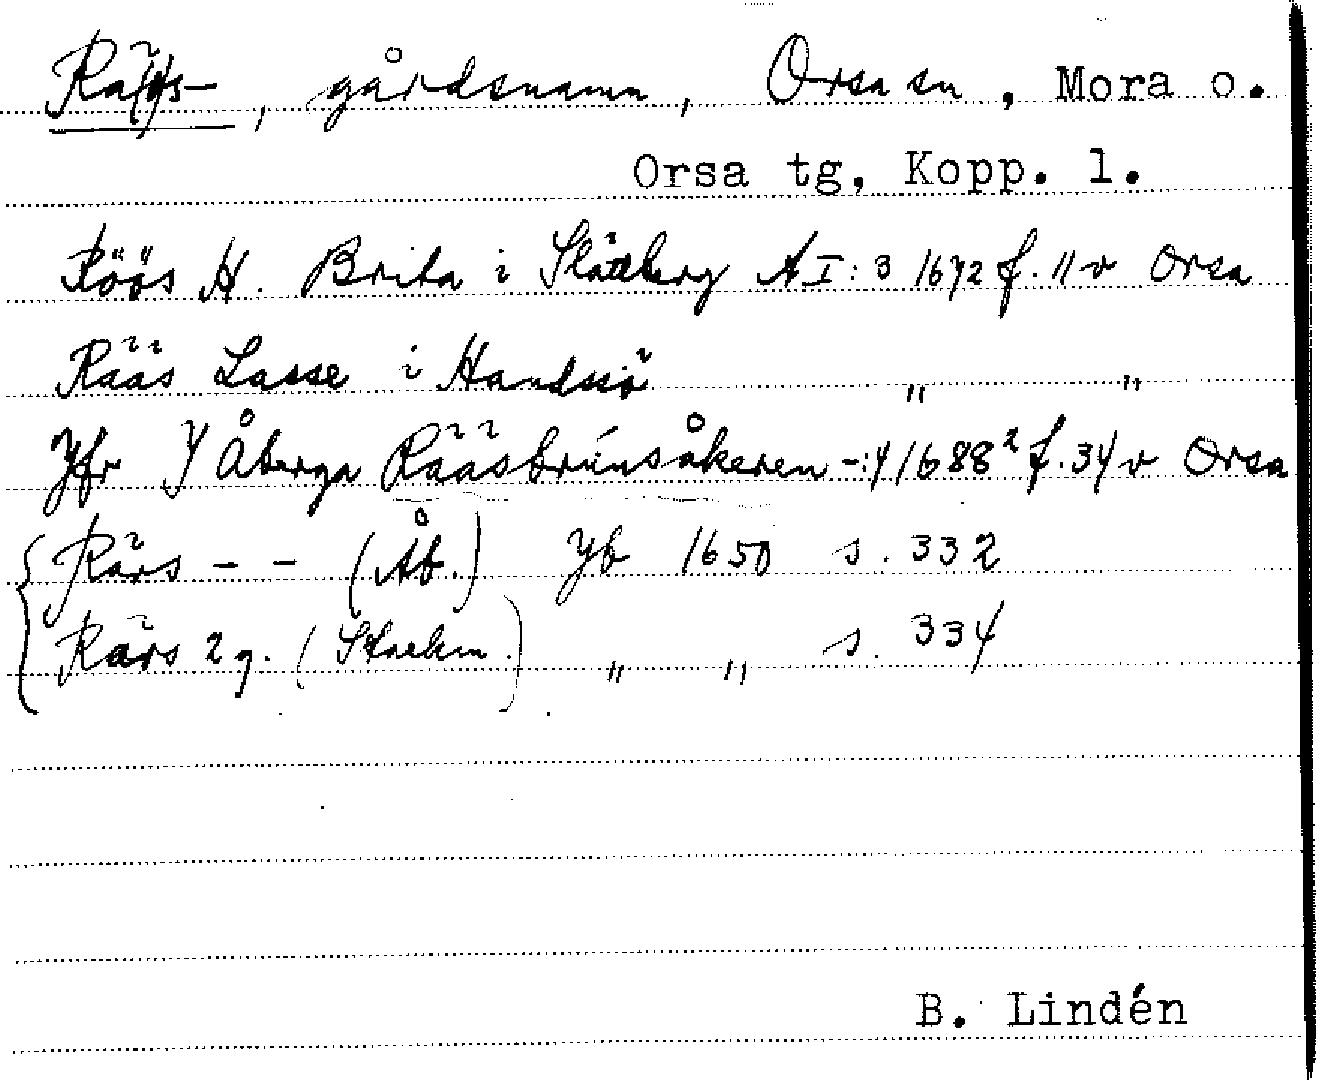 Rä(r)s-, gårdsnamn, Orsa sn, Mora o.
Orsa tg, Kopp. l.
Röös H. Brita i Slättberg A I:3 1672 f. 11 v Orsa
Rääs Lasse i Handsiö " "
Jfr Y Åberga Rääsbrúnsåkeren -:4 1688² f. 34 v Orsa
Rärs - - (Åb.) Jb 1650 s. 332
Rärs 2 g. (Stackm.) " " s. 334
B. Lindén